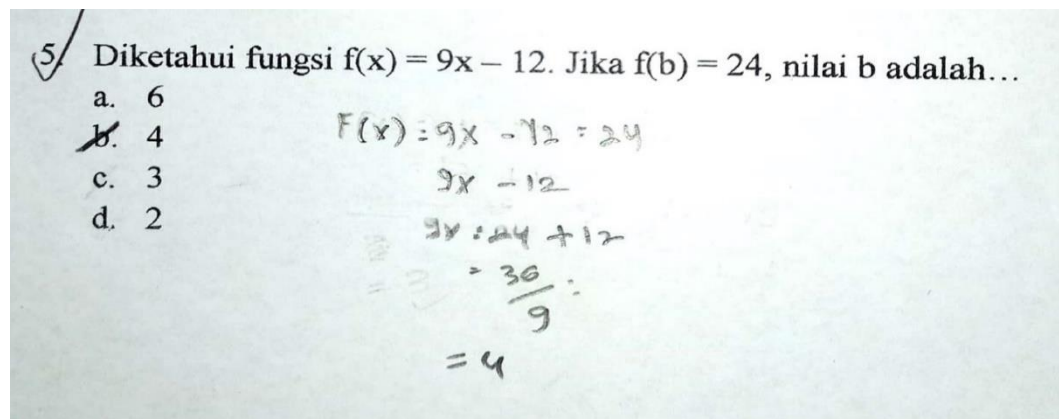 5. Diketahui fungsi f(x) = 9x – 12. Jika f(b) = 24, nilai b adalah…
a. 6
b. 4
c. 3
d. 2
F(x) = 9x - 12 = 24
9x - 12
9x = 24 + 12
= 36
9
= 4